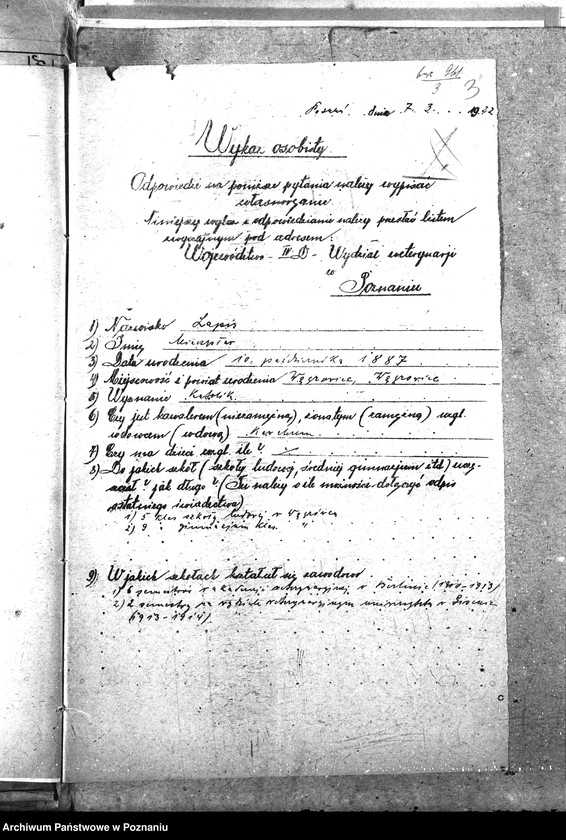 3
3
Poznań, dnia 7. 3. 1922
Wykaz osobisty
Odpowiedzi na poniższe pytania należy wypisać
własnoręcznie.
Niniejszy wykaz z odpowiedziami należy przesłać listem
zwyczajnym pod adresem:
Województwo - IV D - Wydział weterynarji
w
Poznaniu
1) Nazwisko Lapis
2) Imię
3) Data urodzenia 10. października 1887
4) Miejscowość i powiat urodzenia Wągrowiec, Wągrowiec
5) Wyznanie Katolik
6) Czy jest kawalerem (niezamężną), żonatym (zamężną) wzgl.
wdowcem (wdową) Kawalerem
7) Czy ma dzieci wzgl. ile?
8) Do jakich szkół (szkoły ludowej, średniej gimnazjum itd.) uczęszczał
i jak długo? (Tu należy o ile możności dołączyć odpis
ostatniego świadectwa)
1) 5 klas szkoły ludowej w Wągrówcu
2) 9 " gimnazjum klas. "
9) W jakich szkołach kształcił się zawodowo
1) 6 semestrów w akademji weterynaryjnej w Berlinie (1910-1913)
2) 2 semestry na wydziale weterynaryjnym uniwersytetu w Giessen
(1913-1914)
Archiwum Państwowe w Poznaniu